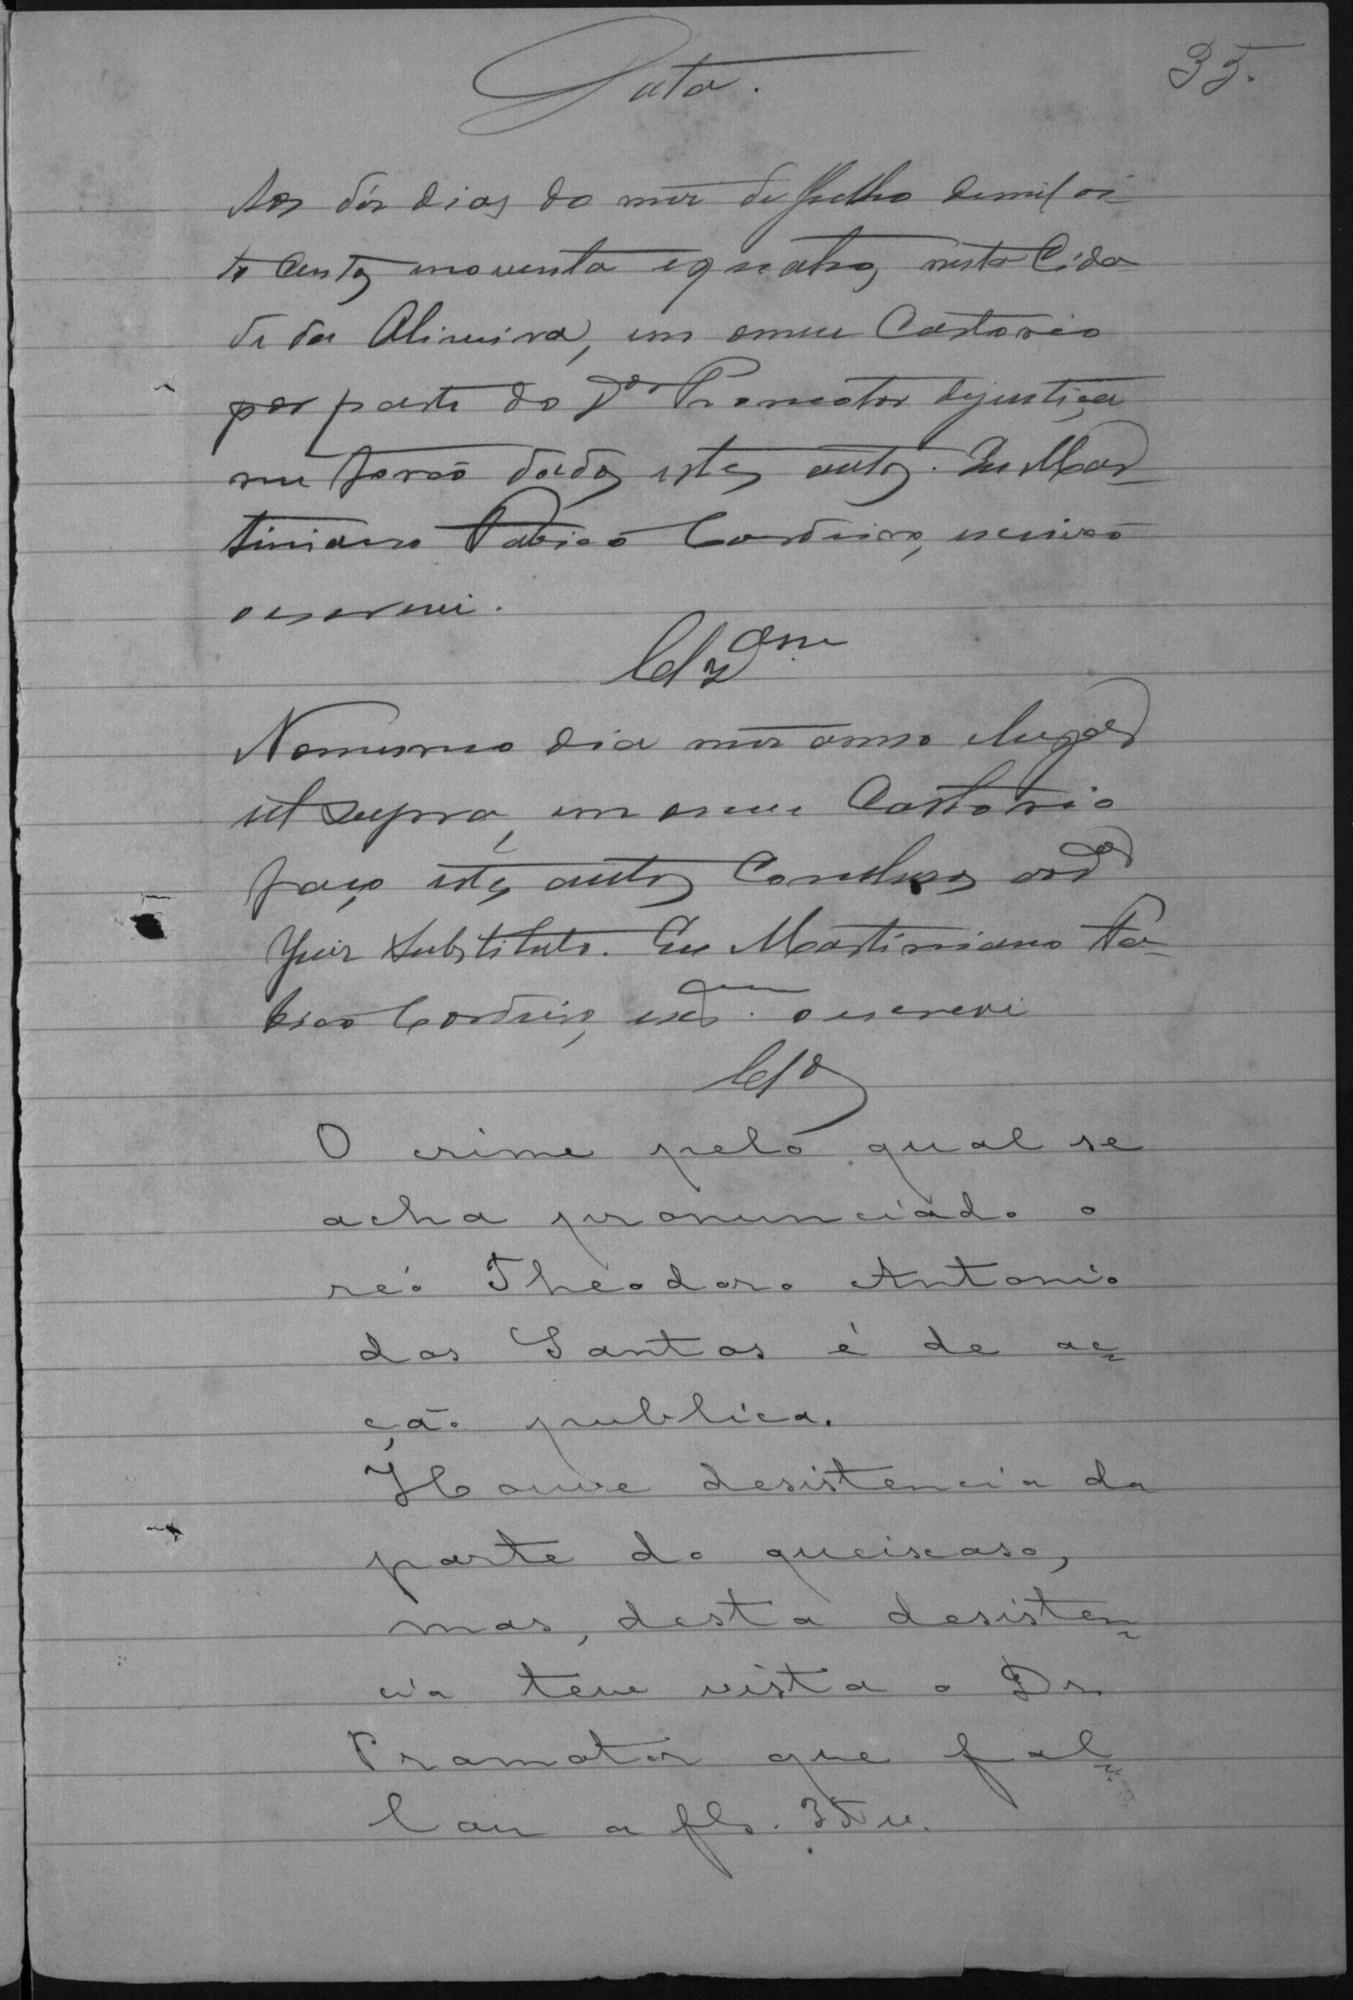 Data.
35.
Aos dós dias do mez de Julho demil oi-
to centos enoventa equatro, nesta Cida
de da Oliveira, em omeu Cartorio
por parte do Dor Promotor dejustiça
me forão dados estes autos. Eu Mar-
tiniano Cordeiro, escrivão
oescrevi.
Clzam
Nomesmo dia mez anno elugar
ut supra, em omeu Cartorio
faço estes autos Conclusos aodor
Juiz Substituto. Eu Martiniano
Cordeiro, oescrevi
Clo
O crime pelo qual se
acha pronunciado o
réo Theodoro Antonio
dos Santos é de ac-
ção publica.
Houve desistencia da
parte do queixoso,
mas, desta desisten-
cia teve vista o Dr.
Promotor que fal-
lou a fls. 35 v.